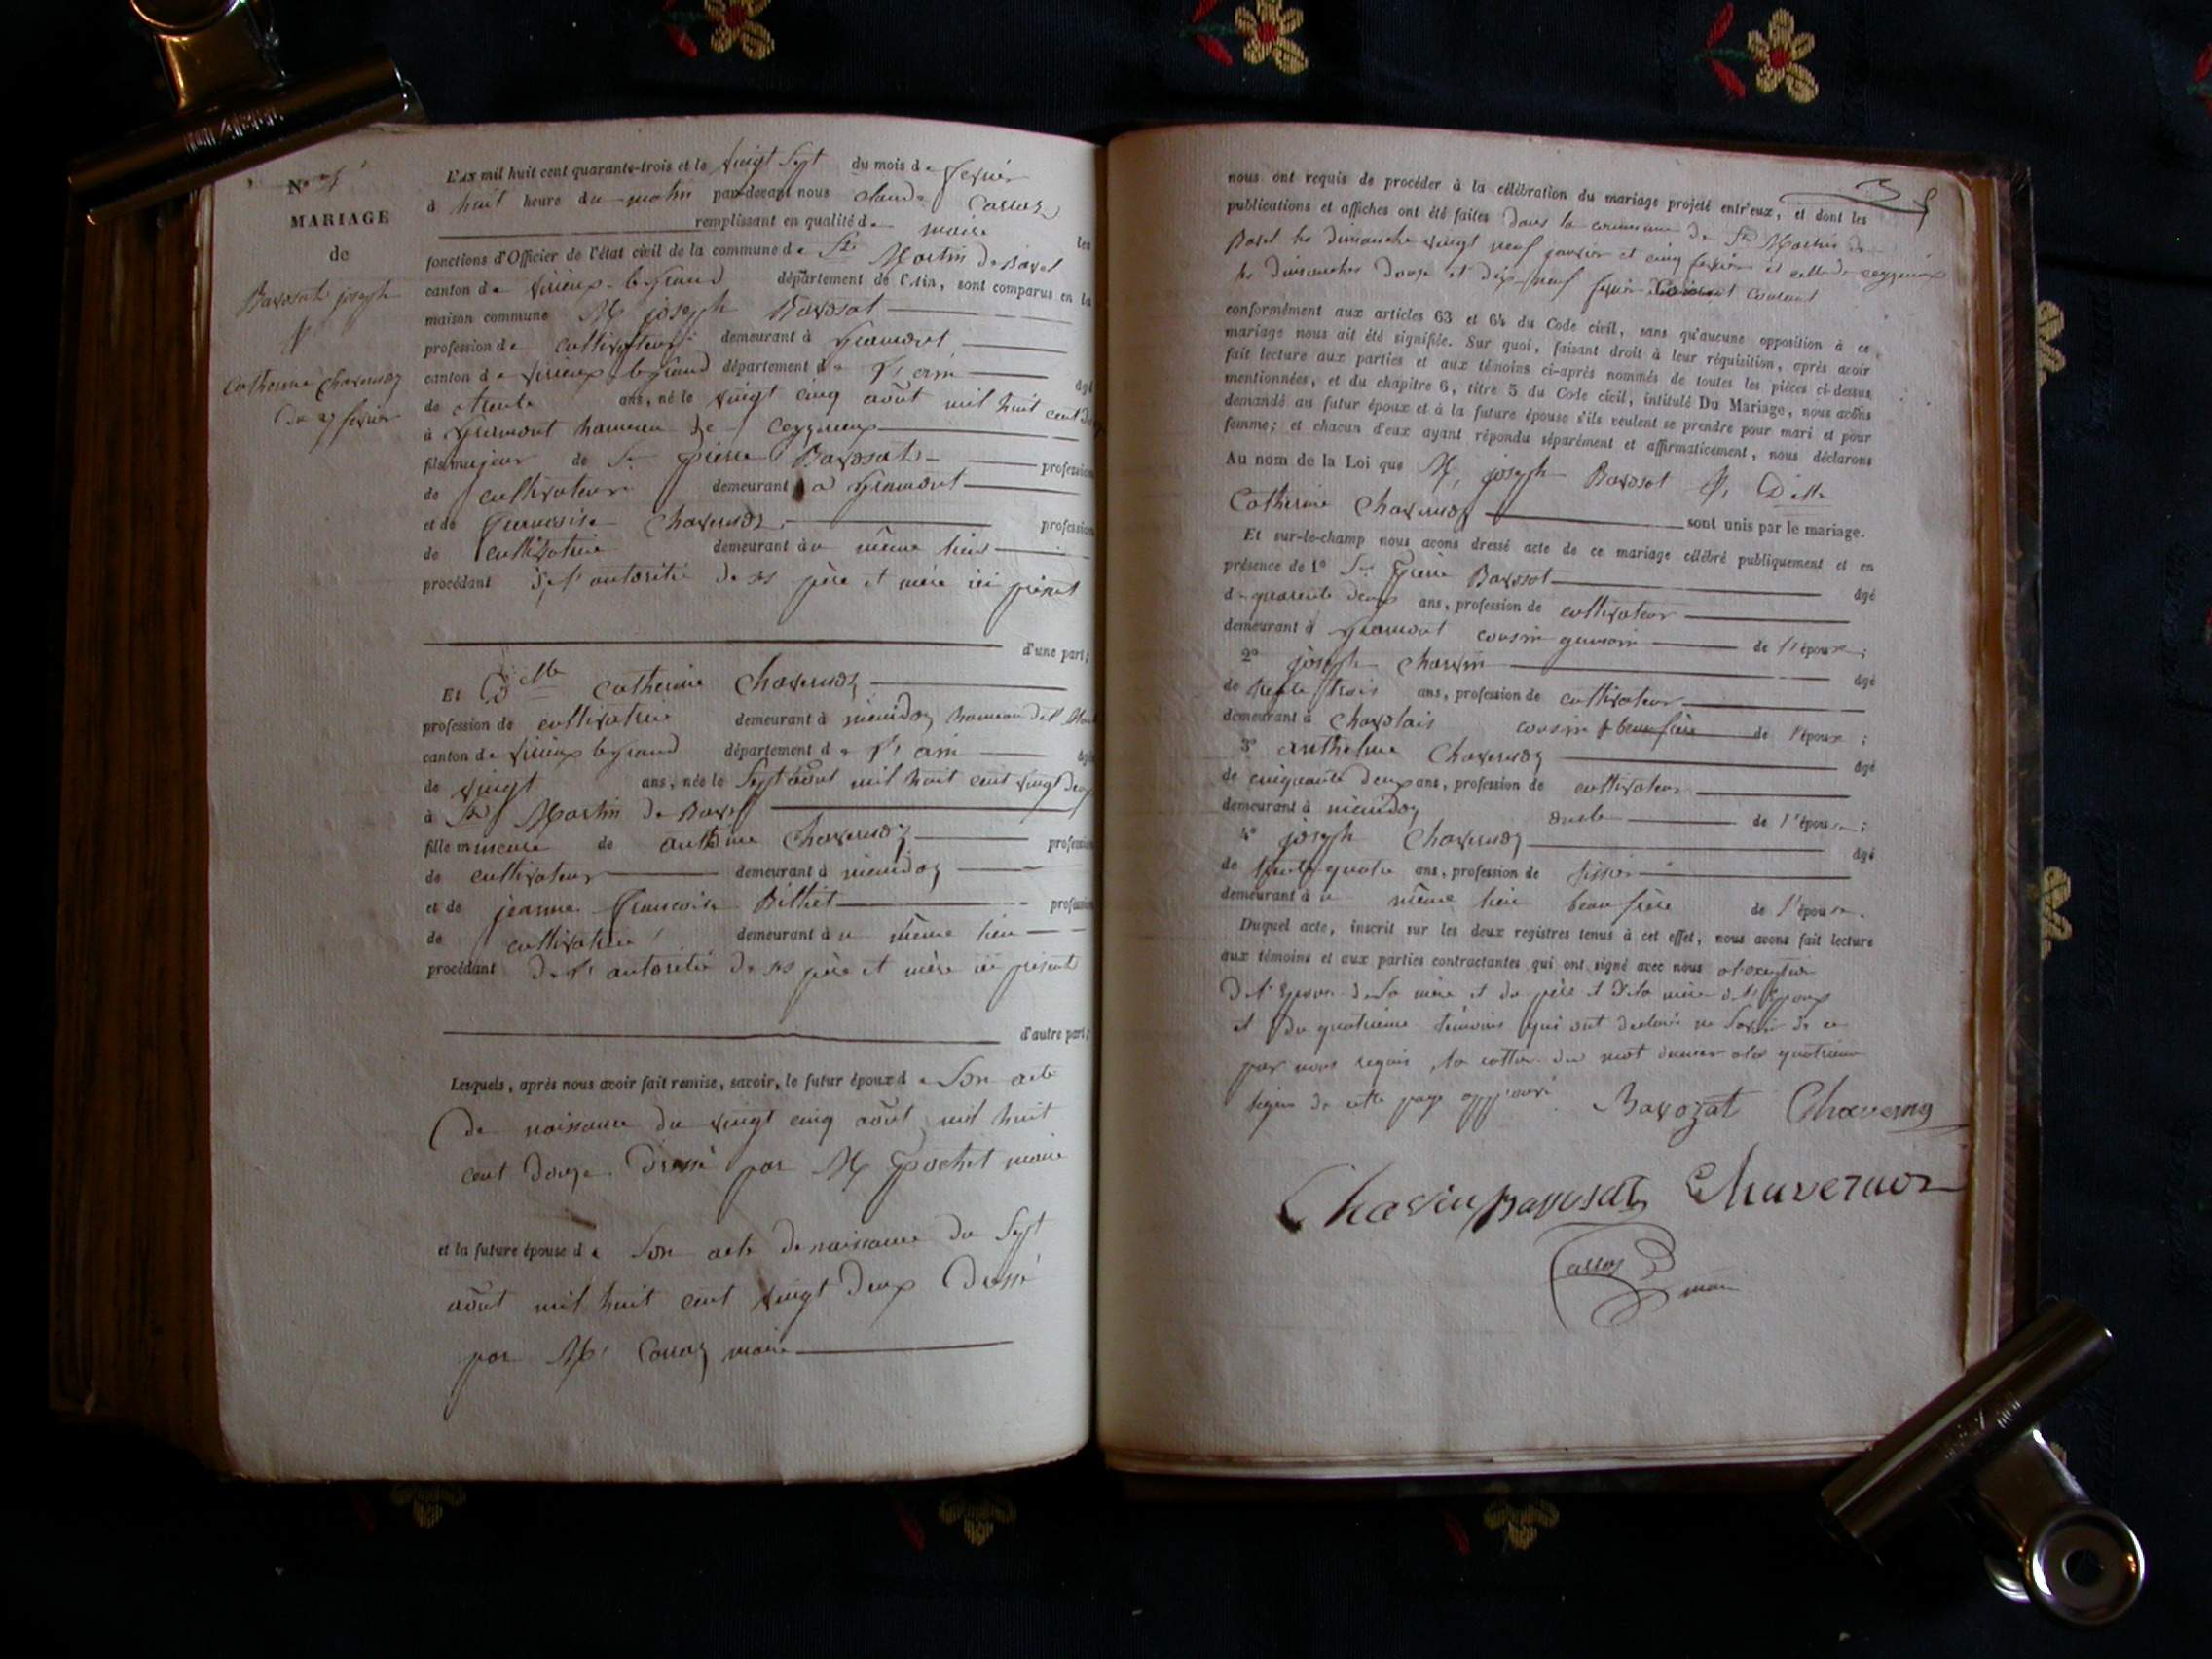 N° 4
MARIAGE
de
Bavosat joseph
&
Catherine Chavernoz
du 27 fevrier
L'AN mil huit cent quarante-trois et le vingt sept du mois de fevrier
à huit heure du matin par-devant nous claude Carroz
remplissant en qualité de maire les
fonctions d'Officier de l'état civil de la commune de St Martin de Bavel
canton de virieux le grand département de l'Ain, sont comparus en la
maison commune M joseph Bavosat
profession de cultivateur demeurant à Gramont
canton de virieux le grand département de l'ain âgé
de trente ans, né le vingt cinq août mil huit cent douze
à Gramont hameau de Ceyzerieux
fils majeur de Sr pierre Bavosat profession
de cultivateur demeurant à Gramont
et de francoise Chavernoz profession
de cultivatrice demeurant au même lieu
procédant de l'autorité de ses père et mère ici présent
d'une part;
Et Dlle Catherine Chavernoz
profession de cultivatrice demeurant à hameau de St
canton de virieux le grand département de l'ain âgée
de vingt ans, née le sept août mil huit cent vingt deux
à St Martin de Bavel
fille mineure de anthelme Chavernoz profession
de cultivateur demeurant à
et de jeanne francoise Billiet profession
de cultivatrice demeurant au même lieu
procédant de l'autorité de ses père et mère ici présents
d'autre part;
Lesquels, après nous avoir fait remise, savoir, le futur époux de son acte
de naissance du vingt cinq août mil huit
cent douze. Dressé par M pochet maire
et la future épouse de son acte de naissance du sept
août mil huit cent vingt deux Dressé
par Mr Carroz maire
nous ont requis de procéder à la célébration du mariage projeté entr'eux, et dont les
publications et affiches ont été faites dans la commune de St Martin de
Bavel les dimanche vingt neuf janvier et cinq fevrier et celle de ceyzerieux
les dimanches douze et dix-neuf fevrier courant
conformément aux articles 63 et 64 du Code civil, sans qu'aucune opposition à ce
mariage nous ait été signifiée. Sur quoi, faisant droit à leur réquisition, après avoir
fait lecture aux parties et aux témoins ci-après nommés de toutes les pièces ci-dessus
mentionnées, et du chapitre 6, titre 5 du Code civil, intitulé Du Mariage, nous avons
demandé au futur époux et à la future épouse s'ils veulent se prendre pour mari et pour
femme; et chacun d'eux ayant répondu séparément et affirmativement, nous déclarons
Au nom de la Loi que M. joseph Bavosat & Delle
Catherine Chavernoz sont unis par le mariage.
Et sur-le-champ nous avons dressé acte de ce mariage célébré publiquement et en
présence de 1° Sr pierre Bavosat âgé
de quarente deux ans, profession de cultivateur
demeurant à Gramont cousin germain de l'époux;
2° joseph Charvin âgé
de trente trois ans, profession de cultivateur
demeurant à Chavolais cousin & beau frère de l'époux;
3° anthelme Chavernoz âgé
de cinquante deux ans, profession de cultivateur
demeurant à oncle de l'épouse;
4° joseph Chavernoz âgé
de trente quatre ans, profession de tissier
demeurant au même lieu beau frère de l'épouse.
Duquel acte, inscrit sur les deux registres tenus à cet effet, nous avons fait lecture
aux témoins et aux parties contractantes qui ont signé avec nous a l'exception
de l'épouse de sa mère et du père et de la mère de l'époux
et du quatrieme témoins qui ont déclaré ne savoir de ce
par nous requis, la du mot a la quatrieme
ligne de cette page approuvé Bavozat Chaverno
Charvin Bavosat Chavernoz
Carroz maire